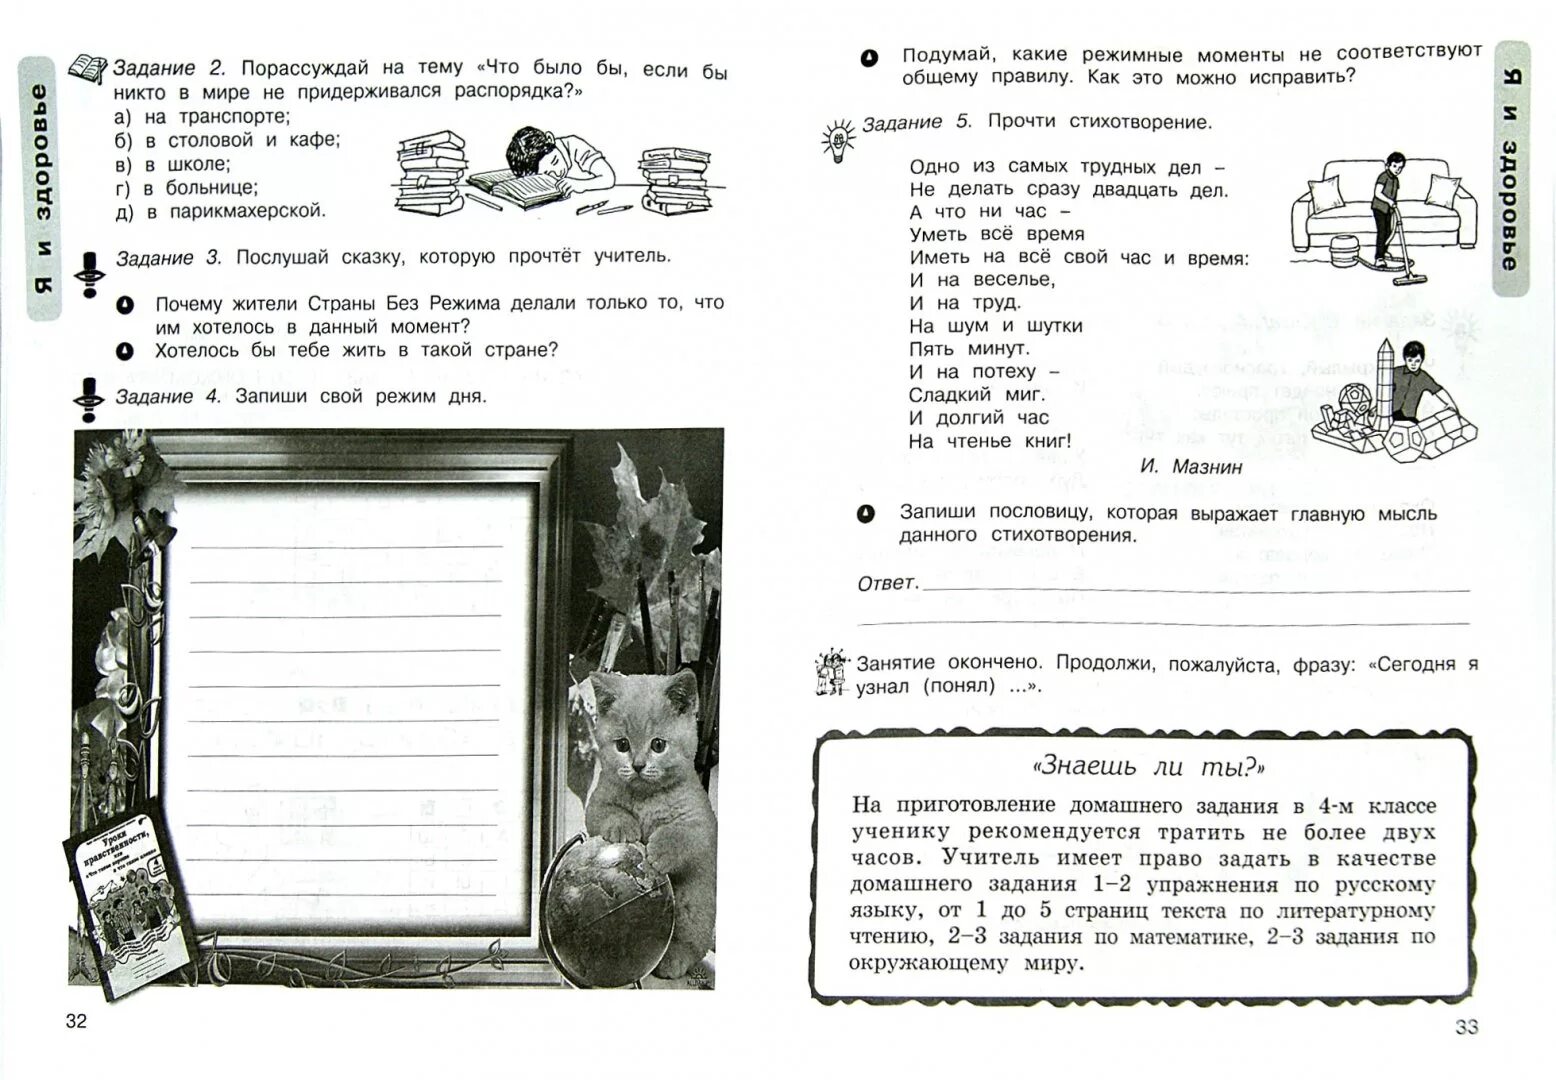 Я и здоровье
Задание 2. Порассуждай на тему «Что было бы, если бы
никто в мире не придерживался распорядка?»
а) на транспорте;
б) в столовой и кафе;
в) в школе;
г) в больнице;
д) в парикмахерской.
Задание 3. Послушай сказку, которую прочтёт учитель.
Почему жители Страны Без Режима делали только то, что
им хотелось в данный момент?
Хотелось бы тебе жить в такой стране?
Задание 4. Запиши свой режим дня.
Уроки
нравственности,
или
«Что такое хорошо
и что такое плохо»
4
32
Я и здоровье
Подумай, какие режимные моменты не соответствуют
общему правилу. Как это можно исправить?
Задание 5. Прочти стихотворение.
Одно из самых трудных дел –
Не делать сразу двадцать дел.
А что ни час –
Уметь всё время
Иметь на всё свой час и время:
И на веселье,
И на труд.
На шум и шутки
Пять минут.
И на потеху –
Сладкий миг.
И долгий час
На чтенье книг!
И. Мазнин
Запиши пословицу, которая выражает главную мысль
данного стихотворения.
Ответ.
Занятие окончено. Продолжи, пожалуйста, фразу: «Сегодня я
узнал (понял) ...».
«Знаешь ли ты?»
На приготовление домашнего задания в 4-м классе
ученику рекомендуется тратить не более двух
часов. Учитель имеет право задать в качестве
домашнего задания 1–2 упражнения по русскому
языку, от 1 до 5 страниц текста по литературному
чтению, 2–3 задания по математике, 2–3 задания по
окружающему миру.
33